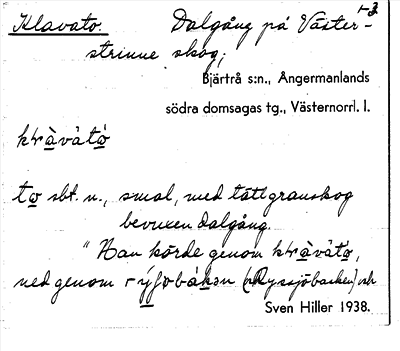 Klavato. Dalgång på Väster- 1-2
strinne skog;
Bjärtrå s:n., Ångermanlands
södra domsagas tg., Västernorrl. l.
to sbt. n., smal, med tätt granskog
bevuxen dalgång.
"Han körde genom
ned genom (Ryssjöbacken) och
Sven Hiller 1938.